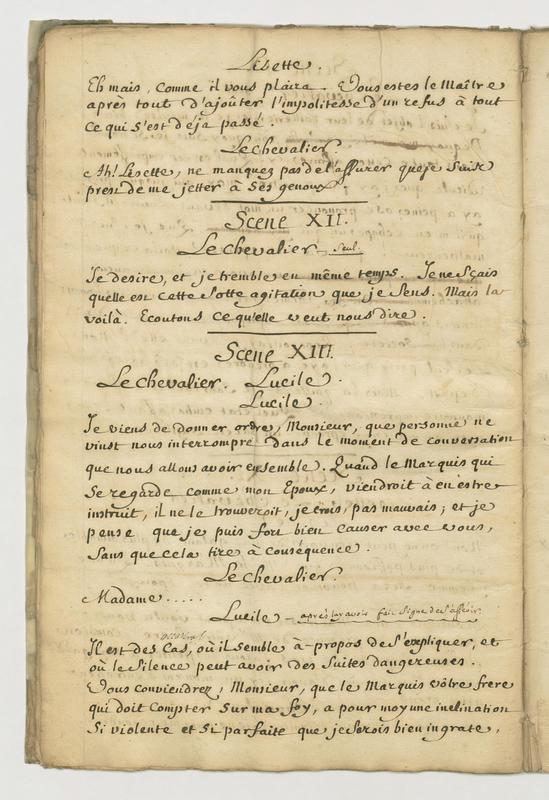 Lisette.
Eh mais, comme il vous plaira. Vous estes le Maître
après tout d'ajoûter l'impolitesse d'un refus à tout
ce qui s'est déja passé.
Le Chevalier
Ah! Lisette, ne manquez pas de l'assurer que je suis
prest de me jetter à ses genoux.
Scene XII.
Le Chevalier seul.
Je desire, et je tremble en même temps. Je ne sçais
quelle est cette sotte agitation que je sens. Mais la
voilà. Ecoutons ce qu'elle veut nous dire.
Scene XIII.
Le Chevalier. Lucile.
Lucile.
Je viens de donner ordre, Monsieur, que personne ne
vinst nous interrompre dans le moment de conversation
que nous allons avoir ensemble. Quand le Marquis qui
se regarde comme mon Epoux, viendroit à en estre
instruit, il ne le trouveroit, je crois, pas mauvais; et je
pense que je puis fort bien causer avec vous,
sans que cela tire à conséquence.
Le Chevalier.
Madame.....
Lucile - après luy avoir fait signe de s'asseoir.
Il est des cas, où il semble à-propos de s'expliquer, et
où le silence peut avoir des suites dangereuses.
Vous conviendrez, Monsieur, que le Marquis vôtre frere
qui doit compter sur ma foy, a pour moy une inclination
si violente et si parfaite que je serois bien ingrate,